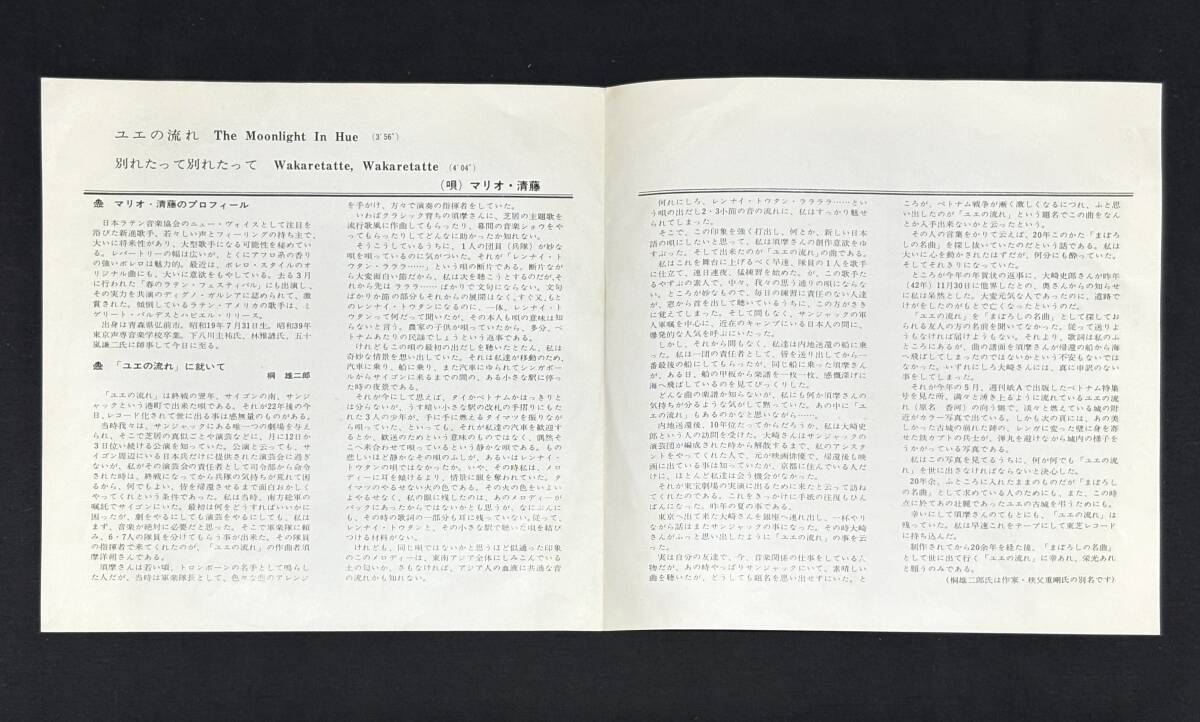 ユエの流れ The Moonlight In Hue (3′56″)
別れたって別れたって Wakaretatte, Wakaretatte (4′04″)
(唄) マリオ・清藤
マリオ・清藤のプロフィール
日本ラテン音楽協会のニュー・ヴォイスとして注目を
浴びた新進歌手、若々しい声とフィーリングの持ち主で、
大いに将来性があり、大型歌手になる可能性を秘めてい
る。レパートリーの幅は広いが、とくにアフロ系の香り
の強いボレロは魅力的。最近は、ボレロ・スタイルのオ
リジナル曲にも、大いに意欲をもやしている。去る3月
に行われた「春のラテン・フェスティバル」にも出演し、
その実力を共演のディグノ・ガルシアに認められて、激
賞された。傾倒しているラテン・アメリカの歌手は、ミ
ゲリート・バルデスとハビエル・リリース。
出身は青森県弘前市。昭和19年7月31日生。昭和39年
東京声専音楽学校卒業。下八川圭祐氏、林雅諺氏、五十
嵐謙二氏に師事して今日に至る。
「ユエの流れ」に就いて
桐 雄二郎
「ユエの流れ」は終戦の翌年、サイゴンの南、サンジ
ャックという港町で出来た唄である。それが22年後の今
日、レコード化されて世に出る事は感無量のものがある。
当時我々は、サンジャックにある唯一つの劇場を与え
られ、そこで芝居の真似ごとや演芸などに、月に12日か
3日位い続ける公演を知っていた。公演と云っても、サイ
ゴン周辺にいる日本兵だけに提供された演芸会に過ぎ
ないが、私がその演芸会の責任者として司令部から命令
された時は、終戦になってから兵隊の気持ちが荒れて困
るから、何でもよい、皆を帰還させるまで面白おかしく
やってくれという条件であった。私は当時、南方総軍の
嘱託でサイゴンにいた。最初は何をどうすればいいかに
困ったが、劇をやるにしても演芸をやるにしても、私は
まず、音楽が絶対に必要だと思った。そこで軍楽隊に頼
み、6・7人の隊員を分けてもらう事が出来た。その隊員
の指揮者で来てくれたのが、「ユエの流れ」の作曲者須
摩洋朔さんである。
須摩さんは若い頃、トロンボーンの名手として鳴らし
た人だが、当時は軍楽隊長として、色々な曲のアレンジ
を手がけ、方々で演奏の指揮者をしていた。
いわばクラシック育ちの須摩さんに、芝居の主題歌を
流行歌風に作曲してもらったり、幕間の音楽ショウをや
ってもらったりしてどんなに助かったか知れない。
そうこうしているうちに、1人の団員（兵隊）が妙な
唄を唄っているのに気がついた。それが「レンナイ・ト
ウタン・ラララ……」という唄の断片である。断片なが
ら大変面白い節だから、私は大を聴こうとするのだが、そ
れから先は ラララ…… ばかりで文句にならない。文句
ばかりか節の部分もそれからの展開はなく、すぐ又、もと
のレンナイ・トウタンになるのに、一体、レンナイ・ト
ウタンって何だって聞いたが、その本人も唄の意味は知
らないと言う。農家の子供が唄っていたから、多分、ベ
トナムあたりの民謡でしょうという返事である。
けれどもこの唄の最初の出だしを聴いたとたん、私は
奇妙な情景を想い出していた。それは私達が移動のため、
汽車に乗り、船に乗り、また汽車にゆられてシンガポー
ルからサイゴンに来るまでの間の、ある小さな駅に停っ
た時の夜景である。
それが今にして思えば、タイかベトナムかはっきりと
は分らないが、うす暗い小さな駅の改札の手摺りにもた
れた3人の少年が、手に手に燃えるタイマツを振りなが
ら唄っていた、といっても、それが私達の汽車を歓迎す
るとか、歓送のためという意味のものではなく、偶然そ
こへ来合わせて唄っているという雰囲気である。もの
悲しいほど静かなその唄のふしが、あるいはレンナイ・
トウタンの唄ではなかったか。いや、その時私は、メロ
ディーに耳を傾けるより、情景に眼を奪われていた。タ
イマツのやるせない火の色である。その火の色をいよい
よやるせなく、私の眼に残したのは、あのメロディーが
バックにあったからではないかとも思うが、なにぶんに
も、その時の歌詞の一部分も耳に残っていない。従って、
レンナイ・トウタンと、その小さな駅で聴いた唄を結び
つける材料がない。
けれども、同じ唄ではないかと思うほど似通った印象
のこのメロディーは、東南アジア全体にしみこんでいる
土の匂いか、さもなければ、アジア人の血液に共通な音
の流れかも知れない。
何れにしろ、レンナイ・トウタン・ララララ……とい
う唄の出だし2・3小節の音の流れに、私はすっかり魅せ
られてしまった。
そこで、この印象を強く打出し、何とか、新しい日本
語の唄にしたいと思って、私は須摩さんの創作意欲をゆ
すぶった。そして出来たのが「ユエの流れ」の曲である。
私はこれを舞台に上げるべく早速、隊員の1人を歌手
に仕立て、連日連夜、猛練習を始めた。が、この歌手た
るやずぶの素人で、中々、我々の思う通りの唄にならな
い。ところが妙なもので、毎日の練習に責任のない人達
が、窓から音を出して聴いているうちに、この方がさき
に覚えてしまった。そして間もなく、サンジャックの軍
人軍嘱を中心に、近在のキャンプにいる日本人の間に、
爆発的な人気を呼ぶにいたった。
しかし、それから間もなく、私達は内地送還の船に乗
った。私は一団の責任者として、皆を送り出してから一
番最後の船にしてもらったが、同じ船に乗った須摩さん
が、ある日、船の甲板から楽譜を一枚一枚、感慨深げに
海へ飛ばしているのを見てびっくりした。
どんな曲の楽譜か知らないが、私にも何か須摩さんの
気持ちが分るような気がして黙っていた。あの中に「ユ
エの流れ」もあるのかなと思いながら……。
内地送還後、10年位たってからだろうか、私は大崎史
郎という人の訪問を受けた。大崎さんはサンジャックの
演芸団が編成された時から解散するまで、私のアシスタ
ントをやってくれた人で、元が映画俳優で、帰還後も映
画に出ている事は知っていたが、京都に住んでいる人だ
けに、ほとんど私達は会う機会がなかった。
それが東宝劇場の実演に出るために来たと云って訪ね
てくれたのである。これをきっかけに手紙の往復もひん
ぱんになった。昨年の夏の事である。
東京へ出て来た大崎さんを銀座へ連れ出し、一杯やり
ながら話はまたサンジャックの事になった。その時大崎
さんがふっと思い出したように「ユエの流れ」の事を云
った。
実は自分の友達で、今、音楽関係の仕事をしている人
物だが、あの時やっぱりサンジャックにいて、素晴しい
曲を聴いたが、どうしても題名を思い出せずにいた。と
ころが、ベトナム戦争が漸く激しくなるにつれ、ふと思
い出したのが「ユエの流れ」という題名でこの曲をなん
とか入手出来ないかと云ったという。
その人の言葉をかりて云えば、20年このかた「まぼろし
の名曲」を探し抜いていたのだという話である。私は
大いに心を動かされたはずだが、何分にも酔っていた。
そしてそれきりになっていた。
ところが今年の年賀状の返事に、大崎史郎さんが昨年
（42年）11月30日に他界したとの、奥さんからの知らせ
に私は呆然とした。大変元気な人であったのに、道路で
けがをしたのがもとで亡くなったというのだ。
「ユエの流れ」を「まぼろしの名曲」として探してお
られる友人の方の名前を聞いてなかった。従って送りよ
うもなければ届けようもない。それより、歌詞は私のふ
ところにあるが、曲の譜面を須摩さんが帰還の船から海
へ飛ばしてしまったのではないかという不安もないでは
なかった。いずれにしろ大崎さんには、真に申訳のない
事をしてしまった。
それが今年の5月、週刊紙Aで出版したベトナム特集
号を見た所、満々と湧き上るように流れているユエの流
れ（原名 香河）の向う側で、淡々と燃えている城の附
近がカラー写真で出ている。しかも次の頁には、あの美
しかった古城の崩れた跡の、レンガに変った壁に身を寄
せた鉄カブトの兵士が、弾丸を避けながら城内の様子を
うかがっている写真である。
私はこの写真を見てるうちに、何が何でも「ユエの流
れ」を世に出さなければならないと決心した。
20年余、ふところに入れたままのものだが「まぼろし
の名曲」として求めている人のためにも、また、この時
点に於てあの壮麗であったユエの古城を弔うためにも。
幸いにして須摩さんのてもとにも、「ユエの流れ」は
残っていた。私は早速これをテープにして東芝レコード
に持ち込んだ。
制作されてから20余年を経た後、「まぼろしの名曲」
として世に出て行く「ユエの流れ」に幸あれ、栄光あれ
と願うのみである。
（桐雄二郎氏は作家・秩父重剛氏の別名です）